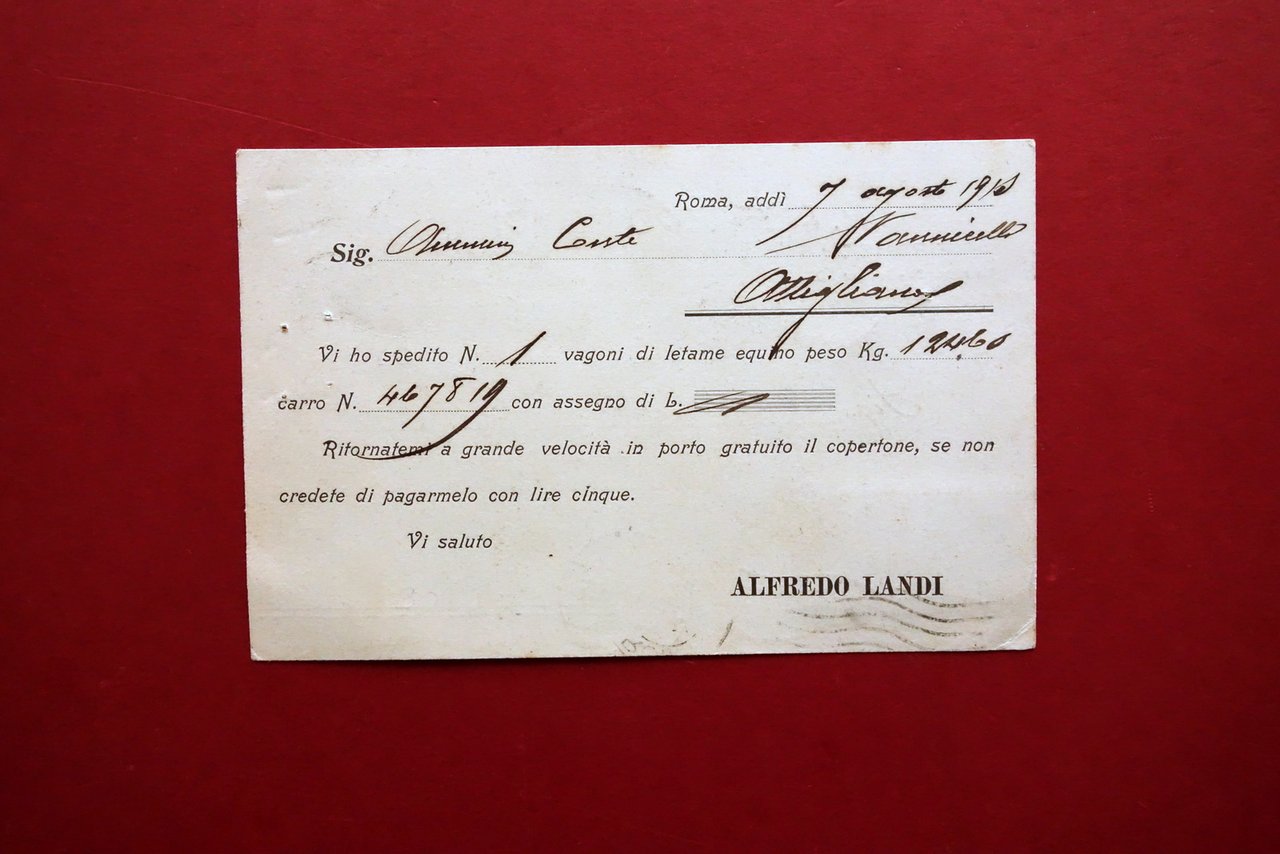 Roma, addì 7 agosto 191
Sig. Conte Vannicelli
Attigliano
Vi ho spedito N. 1 vagoni di letame equino peso Kg. 12460
carro N. 467819 con assegno di L.
Ritornatemi a grande velocità in porto gratuito il copertone, se non
credete di pagarmelo con lire cinque.
Vi saluto
ALFREDO LANDI